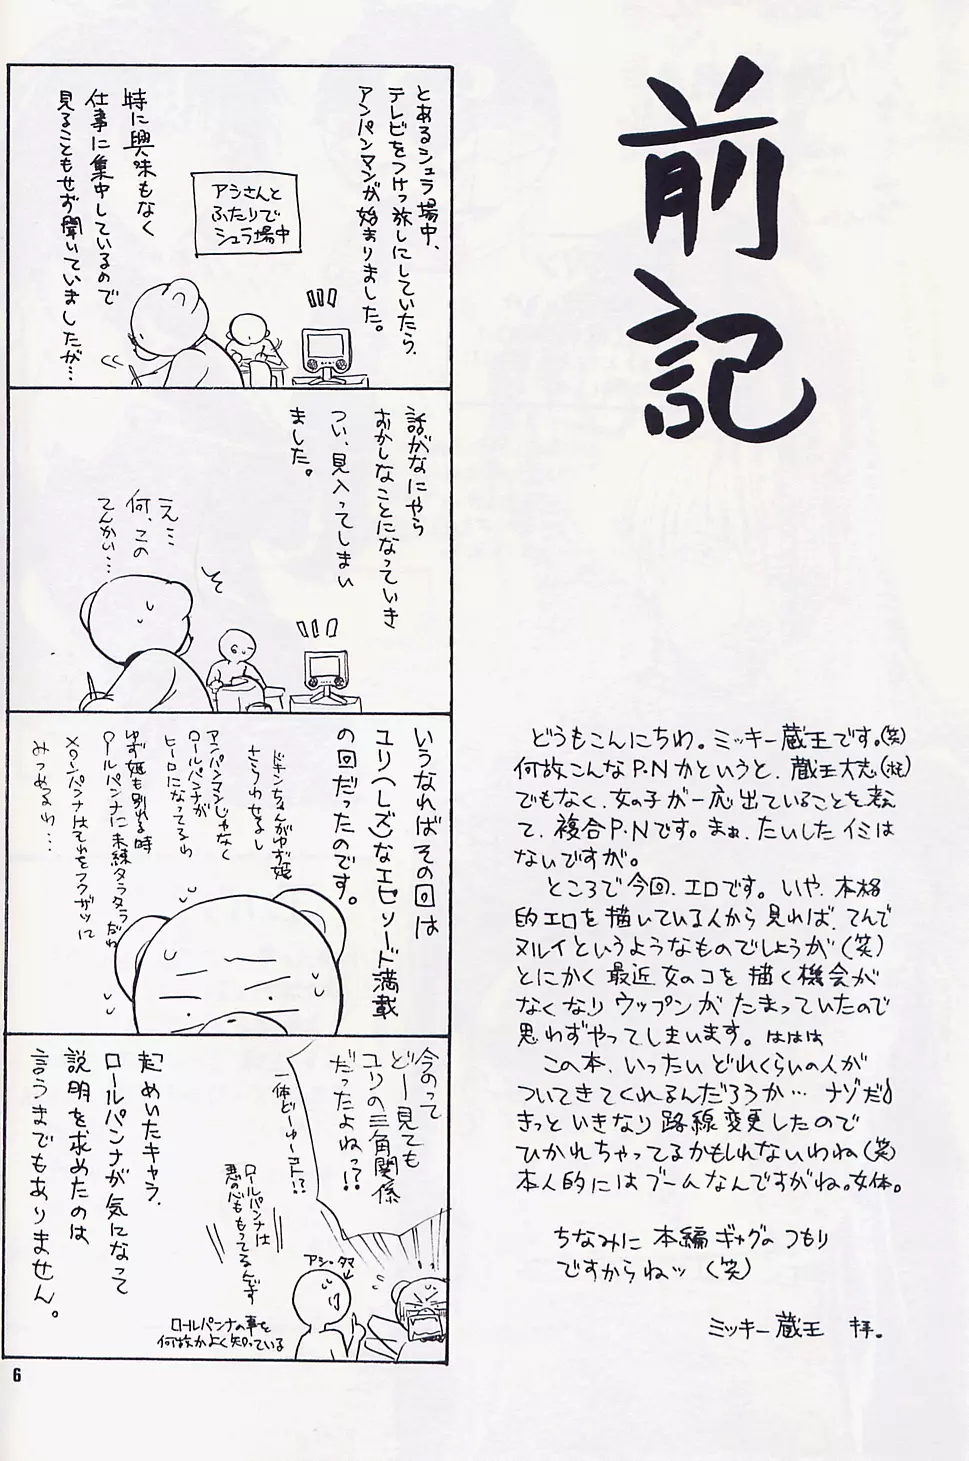 前記
どうもこんにちわ。ミッキー蔵王です。(笑)
何故こんなP.Nかというと、蔵王大志
でもなく、女の子が一応出ていることを考え
て、複合P・Nです。まぁ、たいしたイミは
ないですが。
ところで今回、エロです。いや、本格
的エロを描いている人から見れば、てんで
ヌルイというようなものでしょうが(笑)
とにかく最近女のコを描く機会が
なくなりウップンがたまっていたので
思わずやってしまいます。ははは
この本、いったいどれくらいの人が
ついてきてくれるんだろうか…ナゾだ
きっといきなり路線変更したので
ひかれちゃってるかもしれないわね(笑)
本人的にはブームなんですがね。女体。
ちなみに本編ギャグのつもり
ですからねッ(笑)
ミッキー蔵王 拝。
とあるシュラ場中、
テレビをつけっ放しにしていたら、
アンパンマンが始まりました。
アシさんと
ふたりで
シュラ場中
特に興味もなく
仕事に集中しているので
見ることもせず聞いていましたが…
話がなにやら
おかしなことになっていき
つい、見入ってしまい
ました。
え…
何、この
てんかい…
いうなればその回は
ユリ(レズ)なエピソード満載
の回だったのです。
ドキンちゃんがゆず姫
さらわせるし
アンパンマンじゃなく
ロールパンナが
ヒーロになってるわ
ゆず姫も別れる時
ロールパンナに未練タラタラだわ
メロンパンナはそれをフクザツに
みつめるわ…
今のって
どー見ても
ユリの三角関係
だったよねっ?!
一体どーゆーコト!?
ロールパンナは
悪の心ももってるんです
アシ・タマ
ロールパンナの事を
何故かよく知っている
起めいたキャラ、
ロールパンナが気になって
説明を求めたのは
言うまでもありません。
6